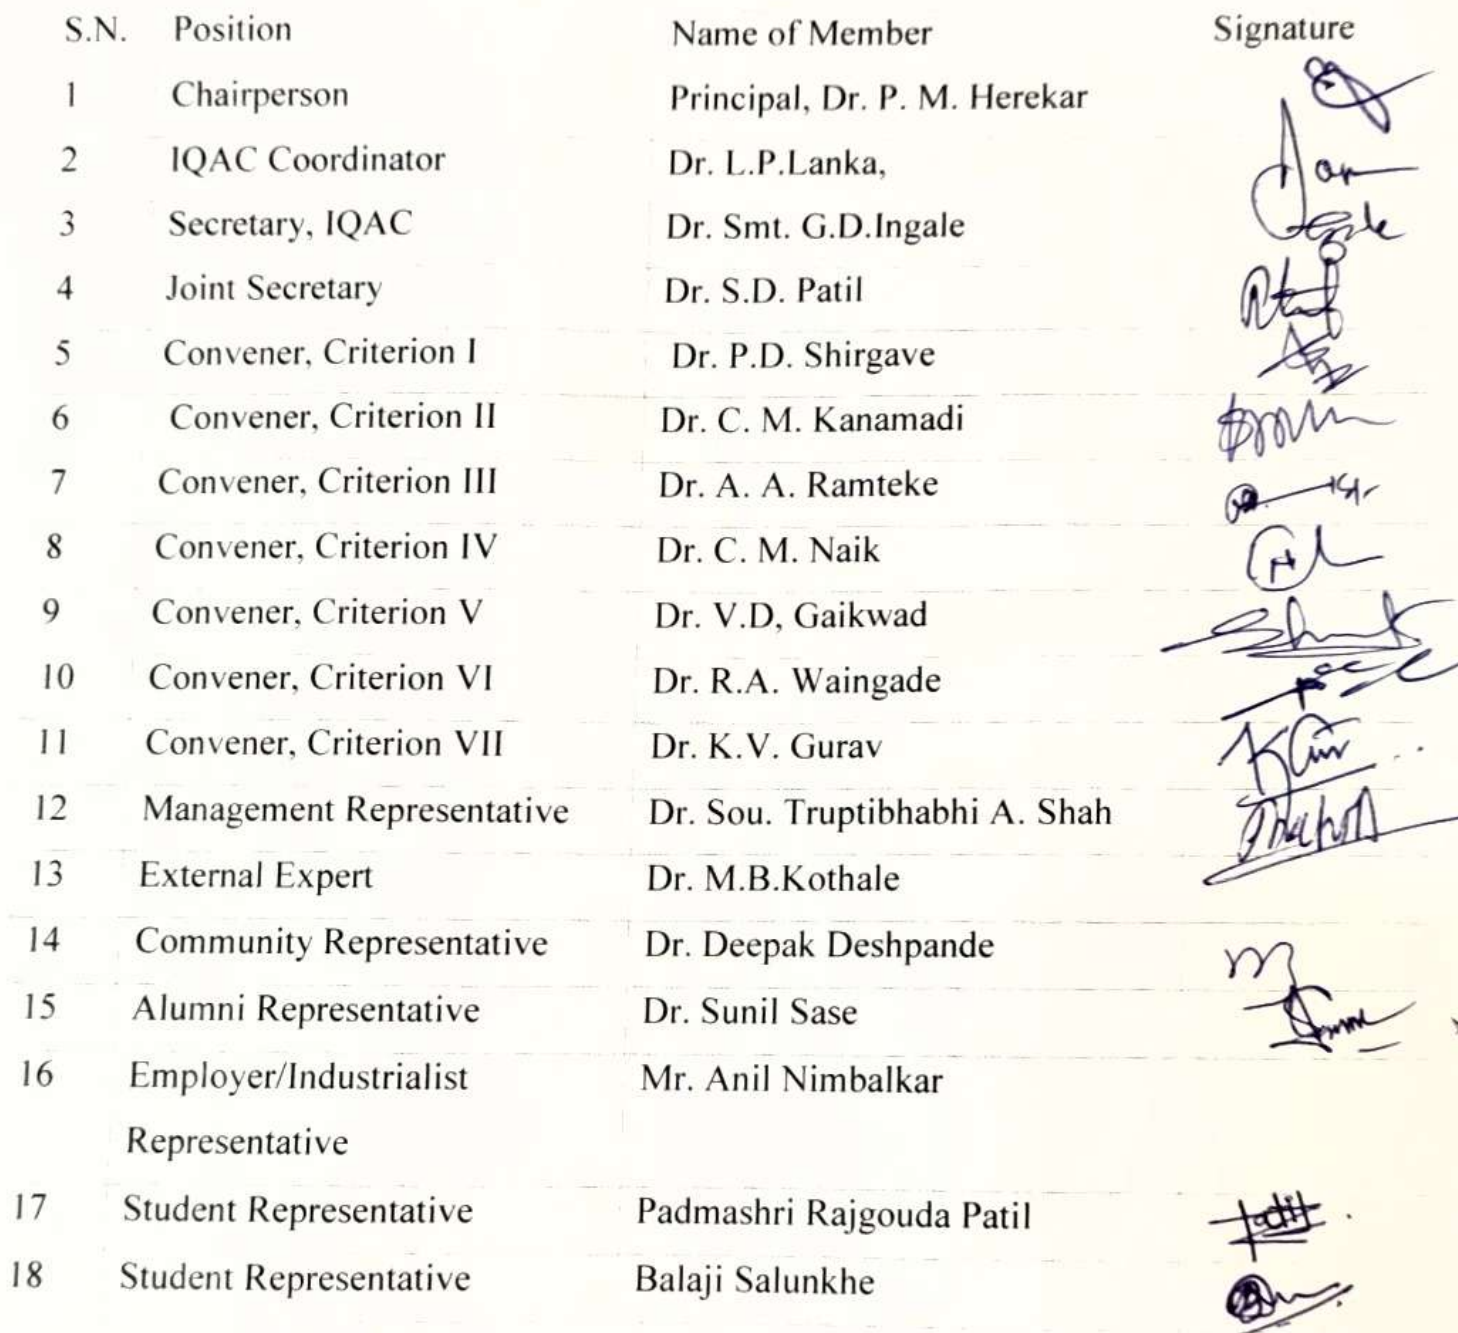 S.N. Position Name of Member Signature
1 Chairperson Principal, Dr. P. M. Herekar
2 IQAC Coordinator Dr. L.P.Lanka,
3 Secretary, IQAC Dr. Smt. G.D.Ingale
4 Joint Secretary Dr. S.D. Patil
5 Convener, Criterion I Dr. P.D. Shirgave
6 Convener, Criterion II Dr. C. M. Kanamadi
7 Convener, Criterion III Dr. A. A. Ramteke
8 Convener, Criterion IV Dr. C. M. Naik
9 Convener, Criterion V Dr. V.D, Gaikwad
10 Convener, Criterion VI Dr. R.A. Waingade
11 Convener, Criterion VII Dr. K.V. Gurav
12 Management Representative Dr. Sou. Truptibhabhi A. Shah
13 External Expert Dr. M.B.Kothale
14 Community Representative Dr. Deepak Deshpande
15 Alumni Representative Dr. Sunil Sase
16 Employer/Industrialist Mr. Anil Nimbalkar
Representative
17 Student Representative Padmashri Rajgouda Patil
18 Student Representative Balaji Salunkhe